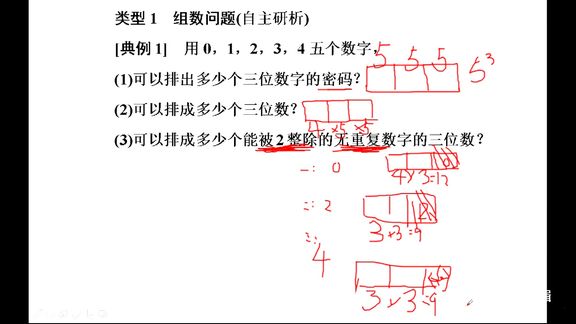 类型1 组数问题(自主研析)
[典例1] 用0，1，2，3，4五个数字，
5 5 5
(1)可以排出多少个三位数字的密码？ 5³
(2)可以排成多少个三位数？
4×5×5
(3)可以排成多少个能被2整除的无重复数字的三位数？
一：0
0
4×3=12
二：2
2
3×3=9
三：
4
4
3×3=9
辑